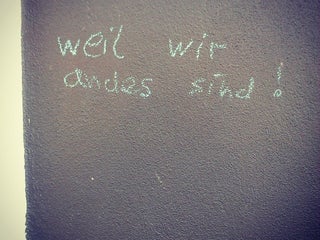 weil wir
andes sind!